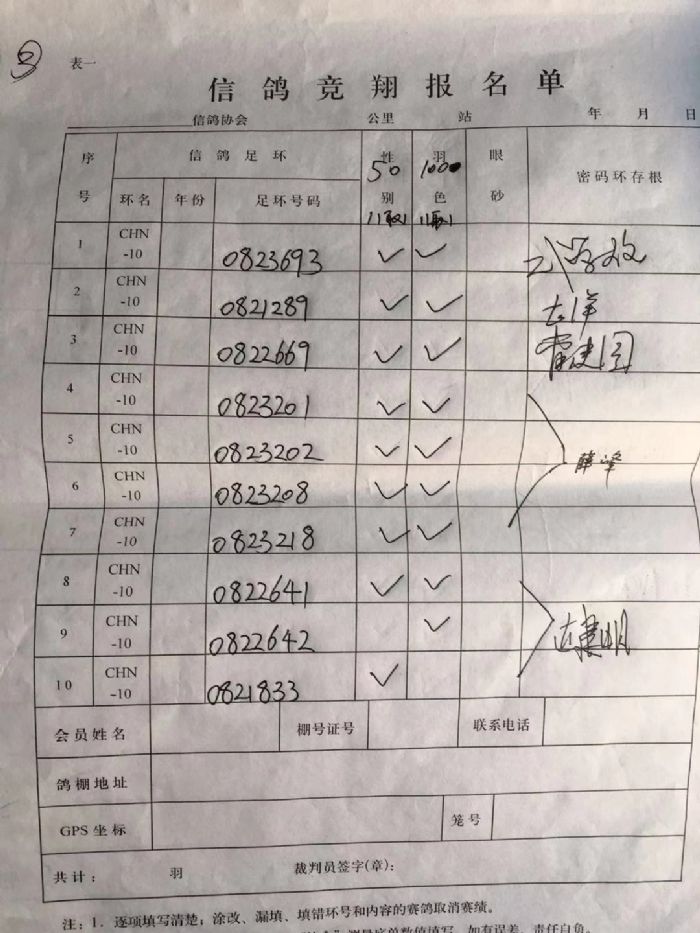 表一
信鸽竞翔报名单
信鸽协会 公里 站 年 月 日
序号 信鸽足环 性别 羽色 眼砂 密码环存根
50 1000
环名 年份 足环号码
11取1 11取1
1 CHN-10 0823693 ✓ ✓
2 CHN-10 0821289 ✓ ✓
3 CHN-10 0822669 ✓ ✓ 雷建国
4 CHN-10 0823201 ✓ ✓
5 CHN-10 0823202 ✓ ✓
薛峰
6 CHN-10 0823208 ✓ ✓
7 CHN-10 0823218 ✓ ✓
8 CHN-10 0822641 ✓ ✓
9 CHN-10 0822642 ✓ 达建明
10 CHN-10 0821833 ✓
会员姓名 棚号证号 联系电话
鸽棚地址
GPS坐标 笼号
共计： 羽 裁判员签字(章):
注：1．逐项填写清楚；涂改、漏填、填错环号和内容的赛鸽取消赛绩。